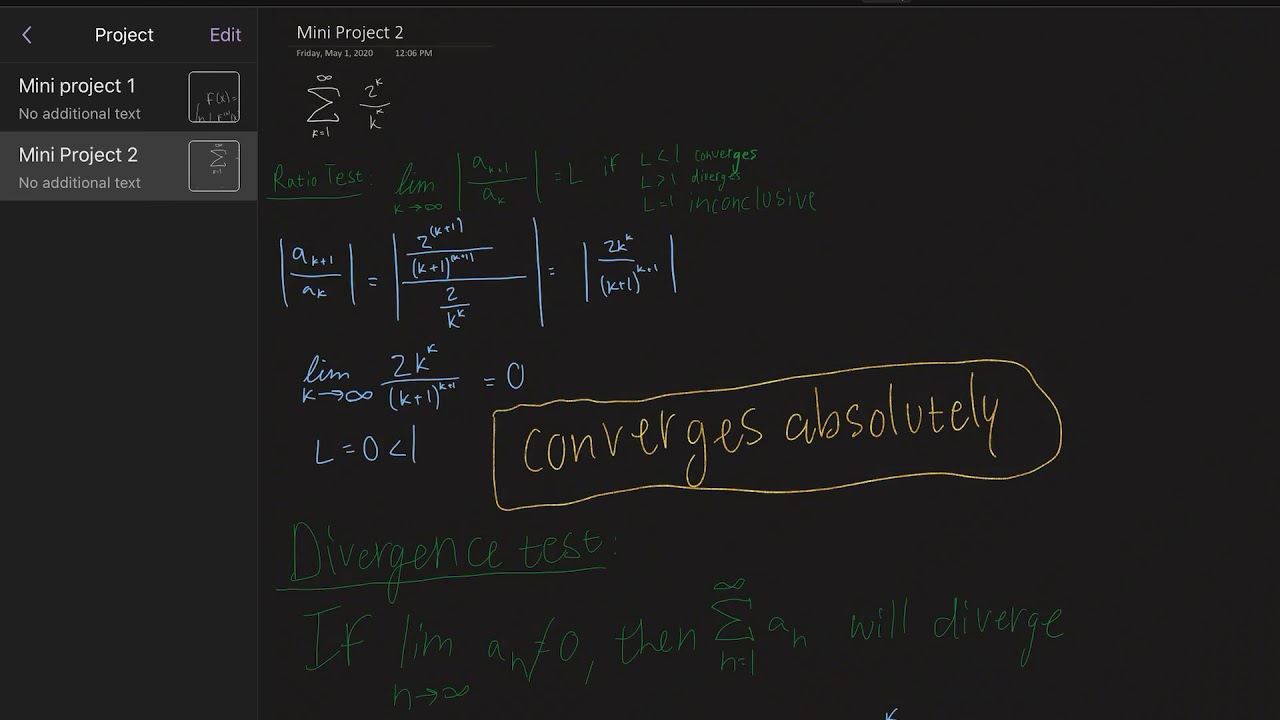 Project
Edit
Mini project 1
No additional text
Mini Project 2
No additional text
Mini Project 2
Friday, May 1, 2020 12:06 PM
∞ ∑ k=1 2^k / k^k
Ratio Test: lim k→∞ | a_{k+1} / a_k | = L if L < 1 converges
L > 1 diverges
L = 1 inconclusive
| a_{k+1} / a_k | = | (2^(k+1) / (k+1)^(k+1)) / (2 / k^k) | = | 2k^k / (k+1)^{k+1} |
lim k→∞ 2k^k / (k+1)^{k+1} = 0
L = 0 < 1
converges absolutely
Divergence test:
If lim n→∞ a_n ≠ 0, then ∞ ∑ n=1 a_n will diverge